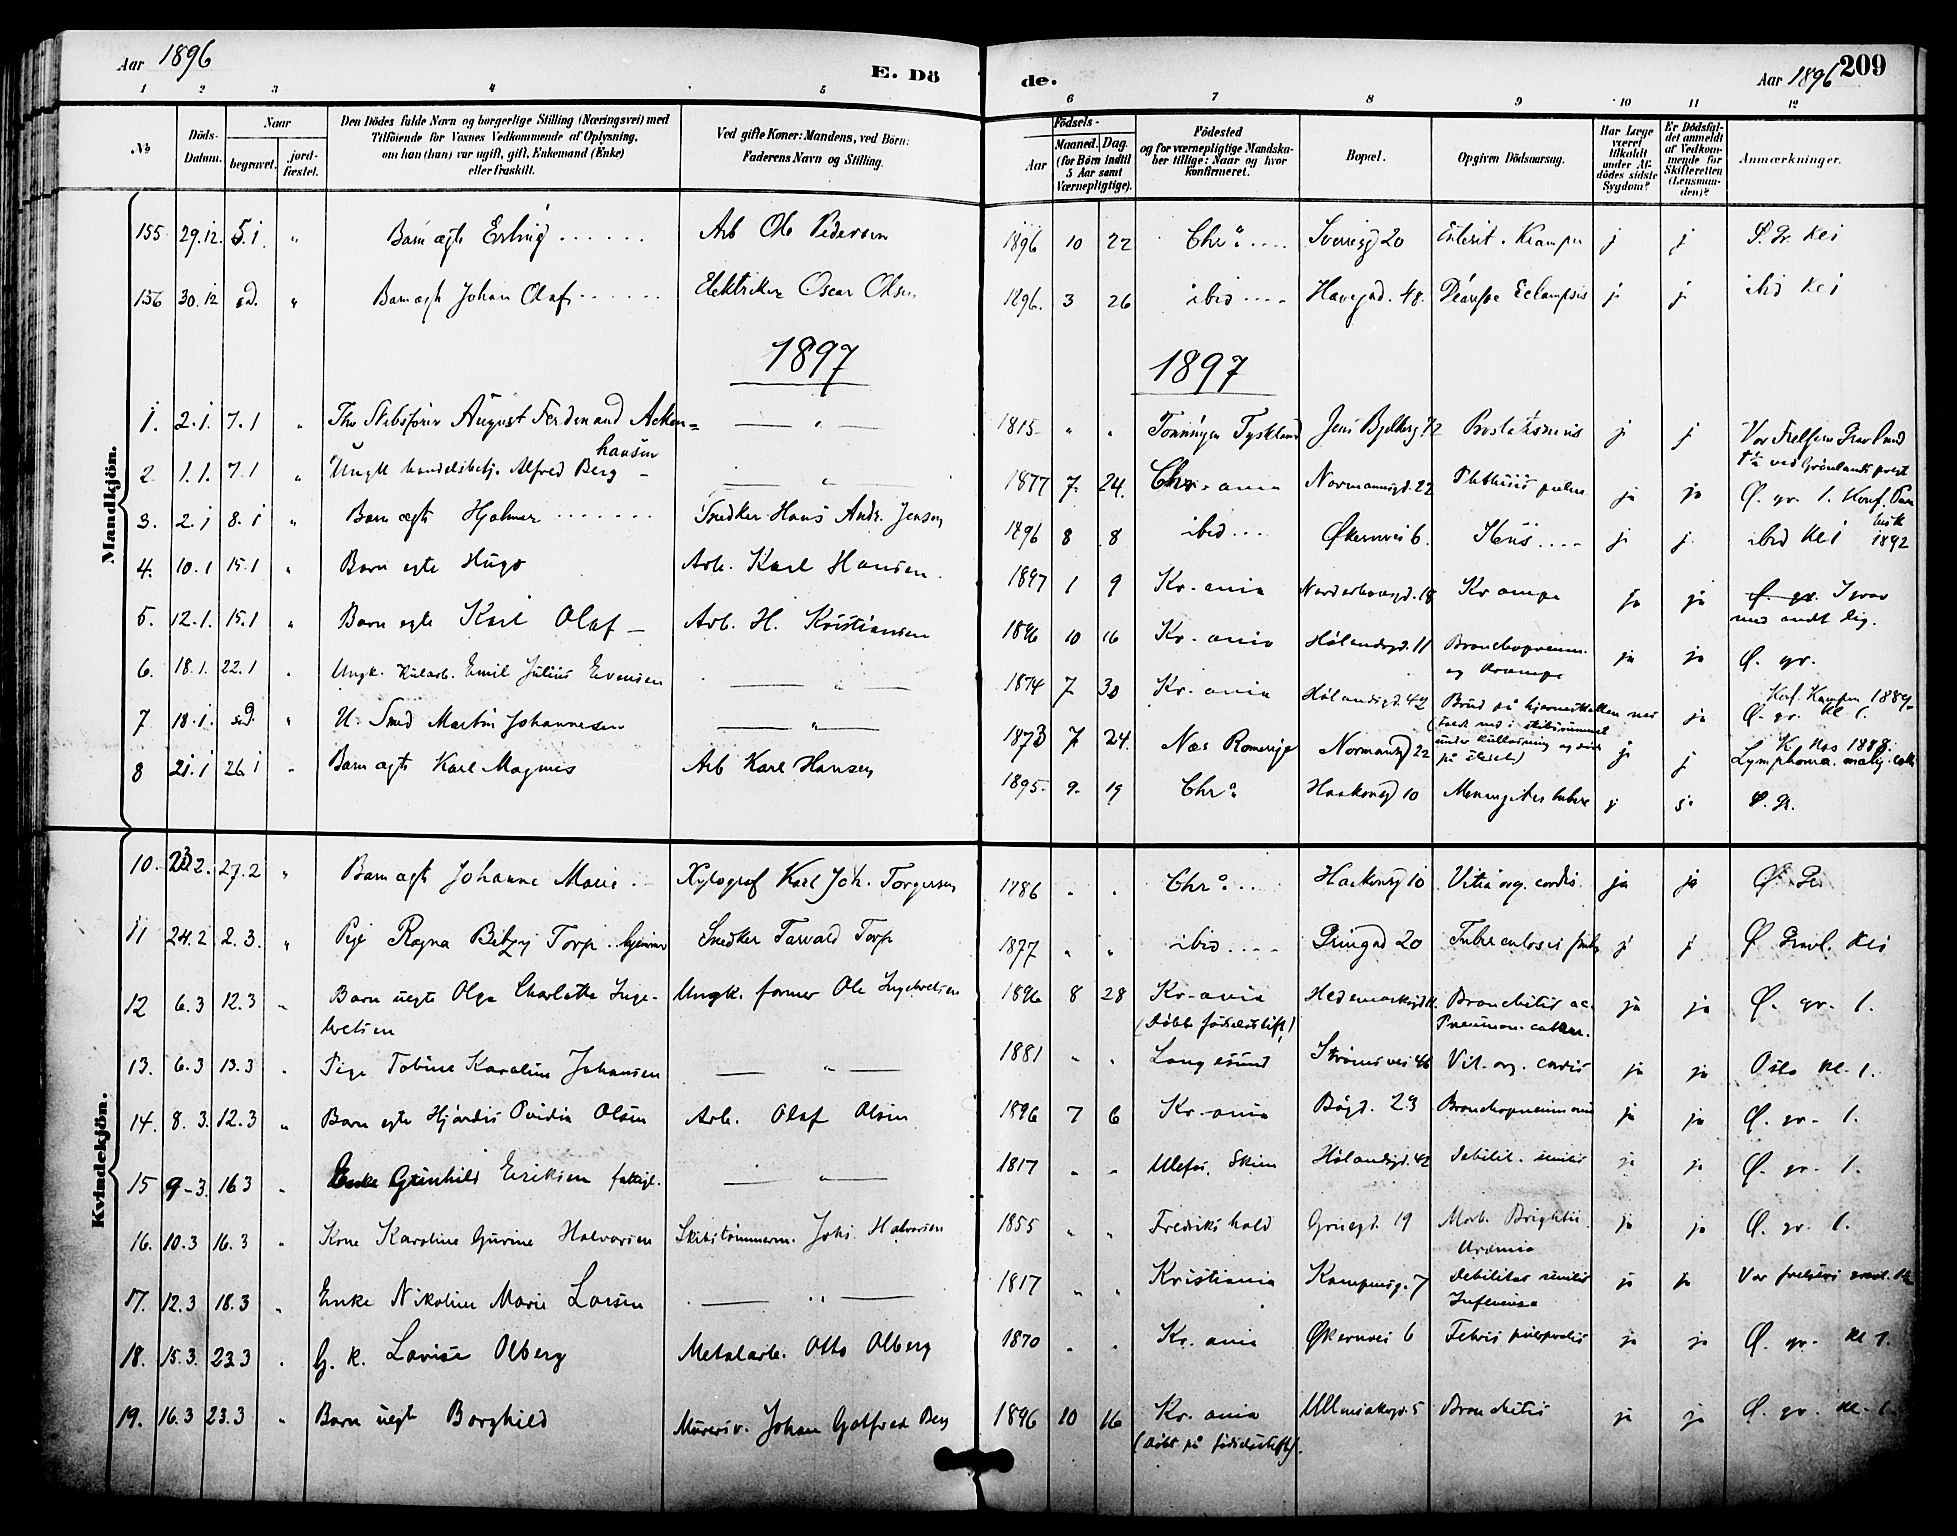 Aar 1896
E. Dö
de.
Aar 1896
209
1 2 3 4 5 6 7 8 9 10 11 12
No
Döds-Datum.
Naar
begravet.
jord-fæstet.
Den Dödes fulde Navn og borgerlige Stilling (Næringsvei) med
Tilföiende for Voxnes Vedkommende af Oplysning,
om han (hun) var ugift, gift, Enkemand (Enke)
eller fraskilt.
Ved gifte Koner: Mandens, ved Börn:
Faderens Navn og Stilling.
Födsels-
Aar
Maaned. Dag.
(for Börn indtil
5 Aar samt
Værnepligtige).
Födested
og for værnepligtige Mandska-
ber tillige: Naar og hvor
konfirmeret.
Bopæl.
Opgiven Dödsaarsag.
Har Læge
været
tilkaldt
under Af-
dödes sidste
Sygdom?
Er Dödsfal-
det anmeldt
af Vedkom-
mende for
Skifteretten
(Lensman-
den)?
Anmærkninger.
Mandkjön.
155 29.12. 5.1. " Barn ægte Erling Arb Ole Pedersen 1896 10 22 Chra Sverresgd 20 j j
156 30.12 sd. " Barn ægte Johan Olaf Elektriker Oscar Olsen 1896. 3 26 ibid Havegad. 48. Eclampsis j j ibid Kl 1
1897
1897
1. 2.1. 7.1 " Skibsfører August Ferdinand Acken=
hausen
1815 " " Tönningen Tyskland j j Vor Frelsers Gravlund
2 1.1. 7.1 " Ungk handelsbetj. Alfred Berg 1877 7. 24. Chr.ania Normannsgd. 22 Phthisis pulm ja ja Ø. gr. 1. Konf.
3. 2.1 8.1 " Barn ægte Hjalmar Snedker Hans Andr. Jensen 1896 8 8 ibid Økernvei 6. j j ibid Kl 1 1892
4. 10.1 15.1 " Barn egte Hugo Arb. Karl Hansen. 1897 1 9 Kr.ania Krampe ja ja I grav
med andt lig.
5. 12.1. 15.1 " Barn egte Karl Olaf Arb. H. Kristiansen 1896 10 16 Kr.ania Hølandsgd. 11 Bronchopneum.
og Krampe ja ja Ø. gr.
6. 18.1. 22.1 " Ungk. Kularb. Emil Julius Evensen 1874 7. 30 Kr.ania Hølandsgd. 42 Brud på hjerneskallen ja Konf. Kampen 1889.
Ø. gr. Kl 1.
7 18.1. sd. " U. Smed Martin Johannesen 1873 7. 24. Næs Romerige Normansgd 22 j j K. Næs 1888.
Lymphoma malig. colli
8 21.1 26.1 " Barn ægte Karl Magnus Arb Karl Hansen 1895. 9. 19 Chra Haakonsgd 10 Meningites tuberc j j Ø. Gr.
Kvindekjön.
10. 23.2. 27.2 " Barn ægte Johanne Marie Xylograf Karl Joh. Torgersen 1886 " " Chra Haakonsgd 10 Vitia org. cordis. ja ja Ø. Gr
11 24.2 2.3. " Pige Ragna Betzy Torp. hjemme Snedker Tarvald Torp 1877 " " ibid 20 Tuberculosis pulm j j Ø. Gravl. Kl 1
12 6.3 12.3 " Barn uegte Olga Charlotte Inge-
bretsen Ungk. former Ole Ingebretsen 1896 8 28 Kr.ania
(Døbt fødselsstift.) Bronchitis ac.
Pneumon. catarr. ja ja Ø. gr. 1.
13. 6.3 13.3 " Pige Tobine Karoline Johansen 1881 " " Langesund Strømsvei 46 Vit. org. cordis ja ja Oslo kl. 1.
14. 8.3. 12.3 " Barn egte Hjørdis Ovidia Olsen Arb. Olaf Olsen 1896 7 6 Kr.ania Bøgd. 23 Bronchopneumoni ja ja Ø. gr. 1.
15 9.3. 16.3 " Enke Gunhild Eriksen fattigl. 1817 " " Ulefos. Skien Hølandsgd. 42 Debilit. senilis ja ja Ø. gr. 1.
16. 10.3 16.3 " Kone Karoline Gurine Halvorsen Skibstømmerm. Johs. Halvorsen 1855 " " Fredrikshald Gruegd. 19 Morb. Brightii.
Uræmia ja ja Ø. gr. 1.
17. 12.3 18.3 " Enke Nikoline Marie Larsen 1817 " " Kristiania Kampensg. 7 Debilitas senilis
Influensa ja ja Vor frelsers gravl.
18. 15.3. 23.3 " G. k. Lovise Olberg Metalarb. Otto Olberg 1870 " " Kr.ania Økernvei 6 Febris puerperalis ja ja Ø. gr. kl 1.
19. 16.3 23.3 " Barn uegte Borghild Murersv. Johan Gotfred Berg 1896 10 16 Kr.ania
(døbt på fødselsstift). Bronchitis ja ja Ø. gr. kl. 1.